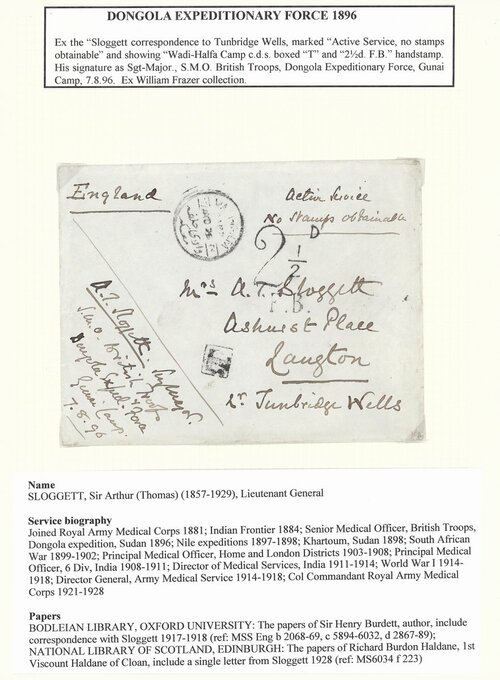 DONGOLA EXPEDITIONARY FORCE 1896
Ex the "Sloggett correspondence to Tunbridge Wells, marked "Active Service, no stamps
obtainable" and showing "Wadi-Halfa Camp c.d.s. boxed "T" and "2½d. F.B." handstamp.
His signature as Sgt-Major., S.M.O. British Troops, Dongola Expeditionary Force, Gunai
Camp, 7.8.96. Ex William Frazer collection.
England
Active Service
No Stamps obtainable
2 1/2 D
F.B.
Mrs A.T. Sloggett
Ashurst Place
Langton
Nr. Tunbridge Wells
T
A.T. Sloggett
S.M.O. British Troops
Dongola Exped. Force
Gunai Camp.
7.8.96
Name
SLOGGETT, Sir Arthur (Thomas) (1857-1929), Lieutenant General
Service biography
Joined Royal Army Medical Corps 1881; Indian Frontier 1884; Senior Medical Officer, British Troops,
Dongola expedition, Sudan 1896; Nile expeditions 1897-1898; Khartoum, Sudan 1898; South African
War 1899-1902; Principal Medical Officer, Home and London Districts 1903-1908; Principal Medical
Officer, 6 Div, India 1908-1911; Director of Medical Services, India 1911-1914; World War I 1914-
1918; Director General, Army Medical Service 1914-1918; Col Commandant Royal Army Medical
Corps 1921-1928
Papers
BODLEIAN LIBRARY, OXFORD UNIVERSITY: The papers of Sir Henry Burdett, author, include
correspondence with Sloggett 1917-1918 (ref: MSS Eng b 2068-69, c 5894-6032, d 2867-89);
NATIONAL LIBRARY OF SCOTLAND, EDINBURGH: The papers of Richard Burdon Haldane, 1st
Viscount Haldane of Cloan, include a single letter from Sloggett 1928 (ref: MS6034 f 223)